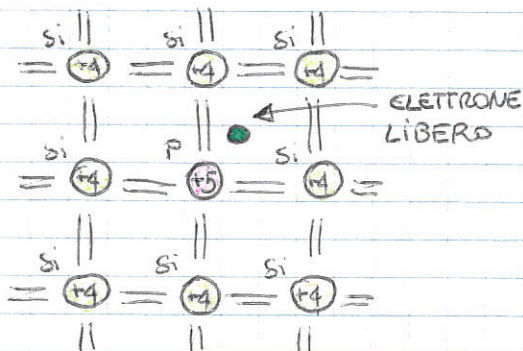 Si Si Si
+4 +4 +4
ELETTRONE
LIBERO
Si P Si
+4 +5 +4
Si Si
+4 +4 +4